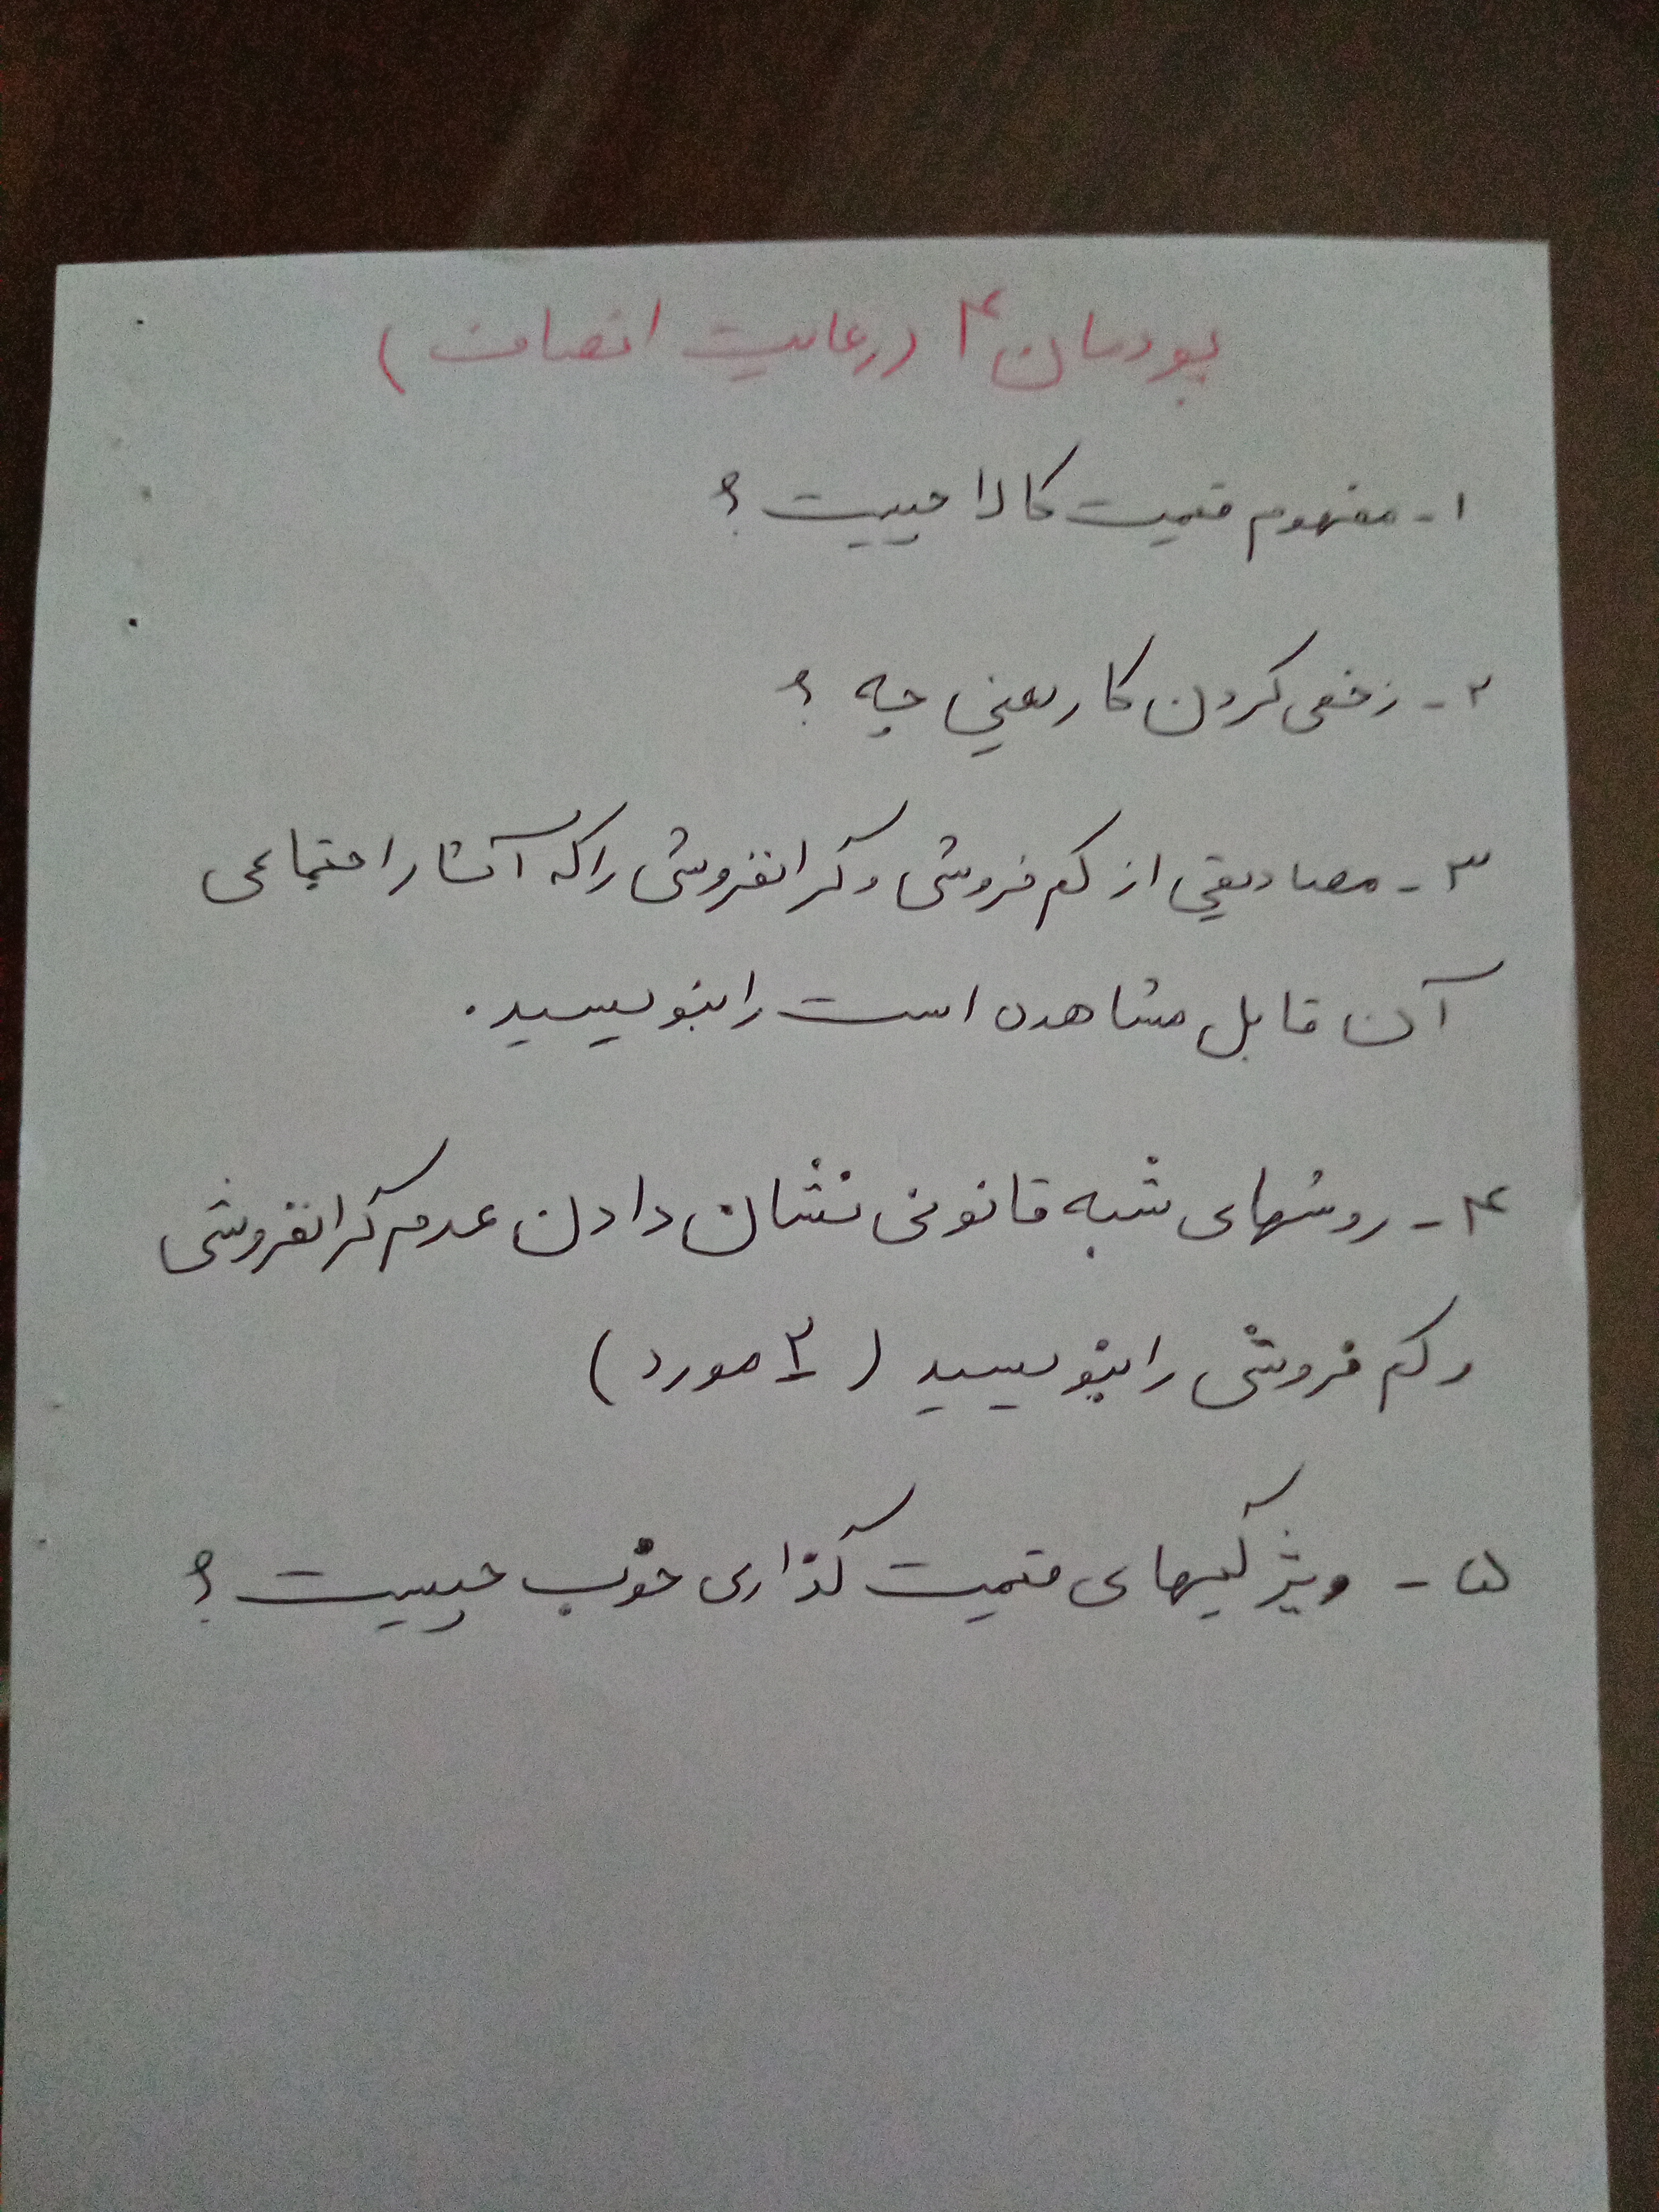 پودمان ۴ (رعایت انصاف)
۱- مفهوم قیمت کالا چیست؟
۲- زخمی کردن کار یعنی چه؟
۳- مصادیقی از کم فروشی و گرانفروشی را که آثار اجتماعی
آن قابل مشاهده است را بنویسید.
۴- روشهای شبه قانونی نشان دادن عدم گرانفروشی
و کم فروشی را بنویسید (۲ مورد)
۵- ویژگیهای قیمت گذاری خوب چیست؟